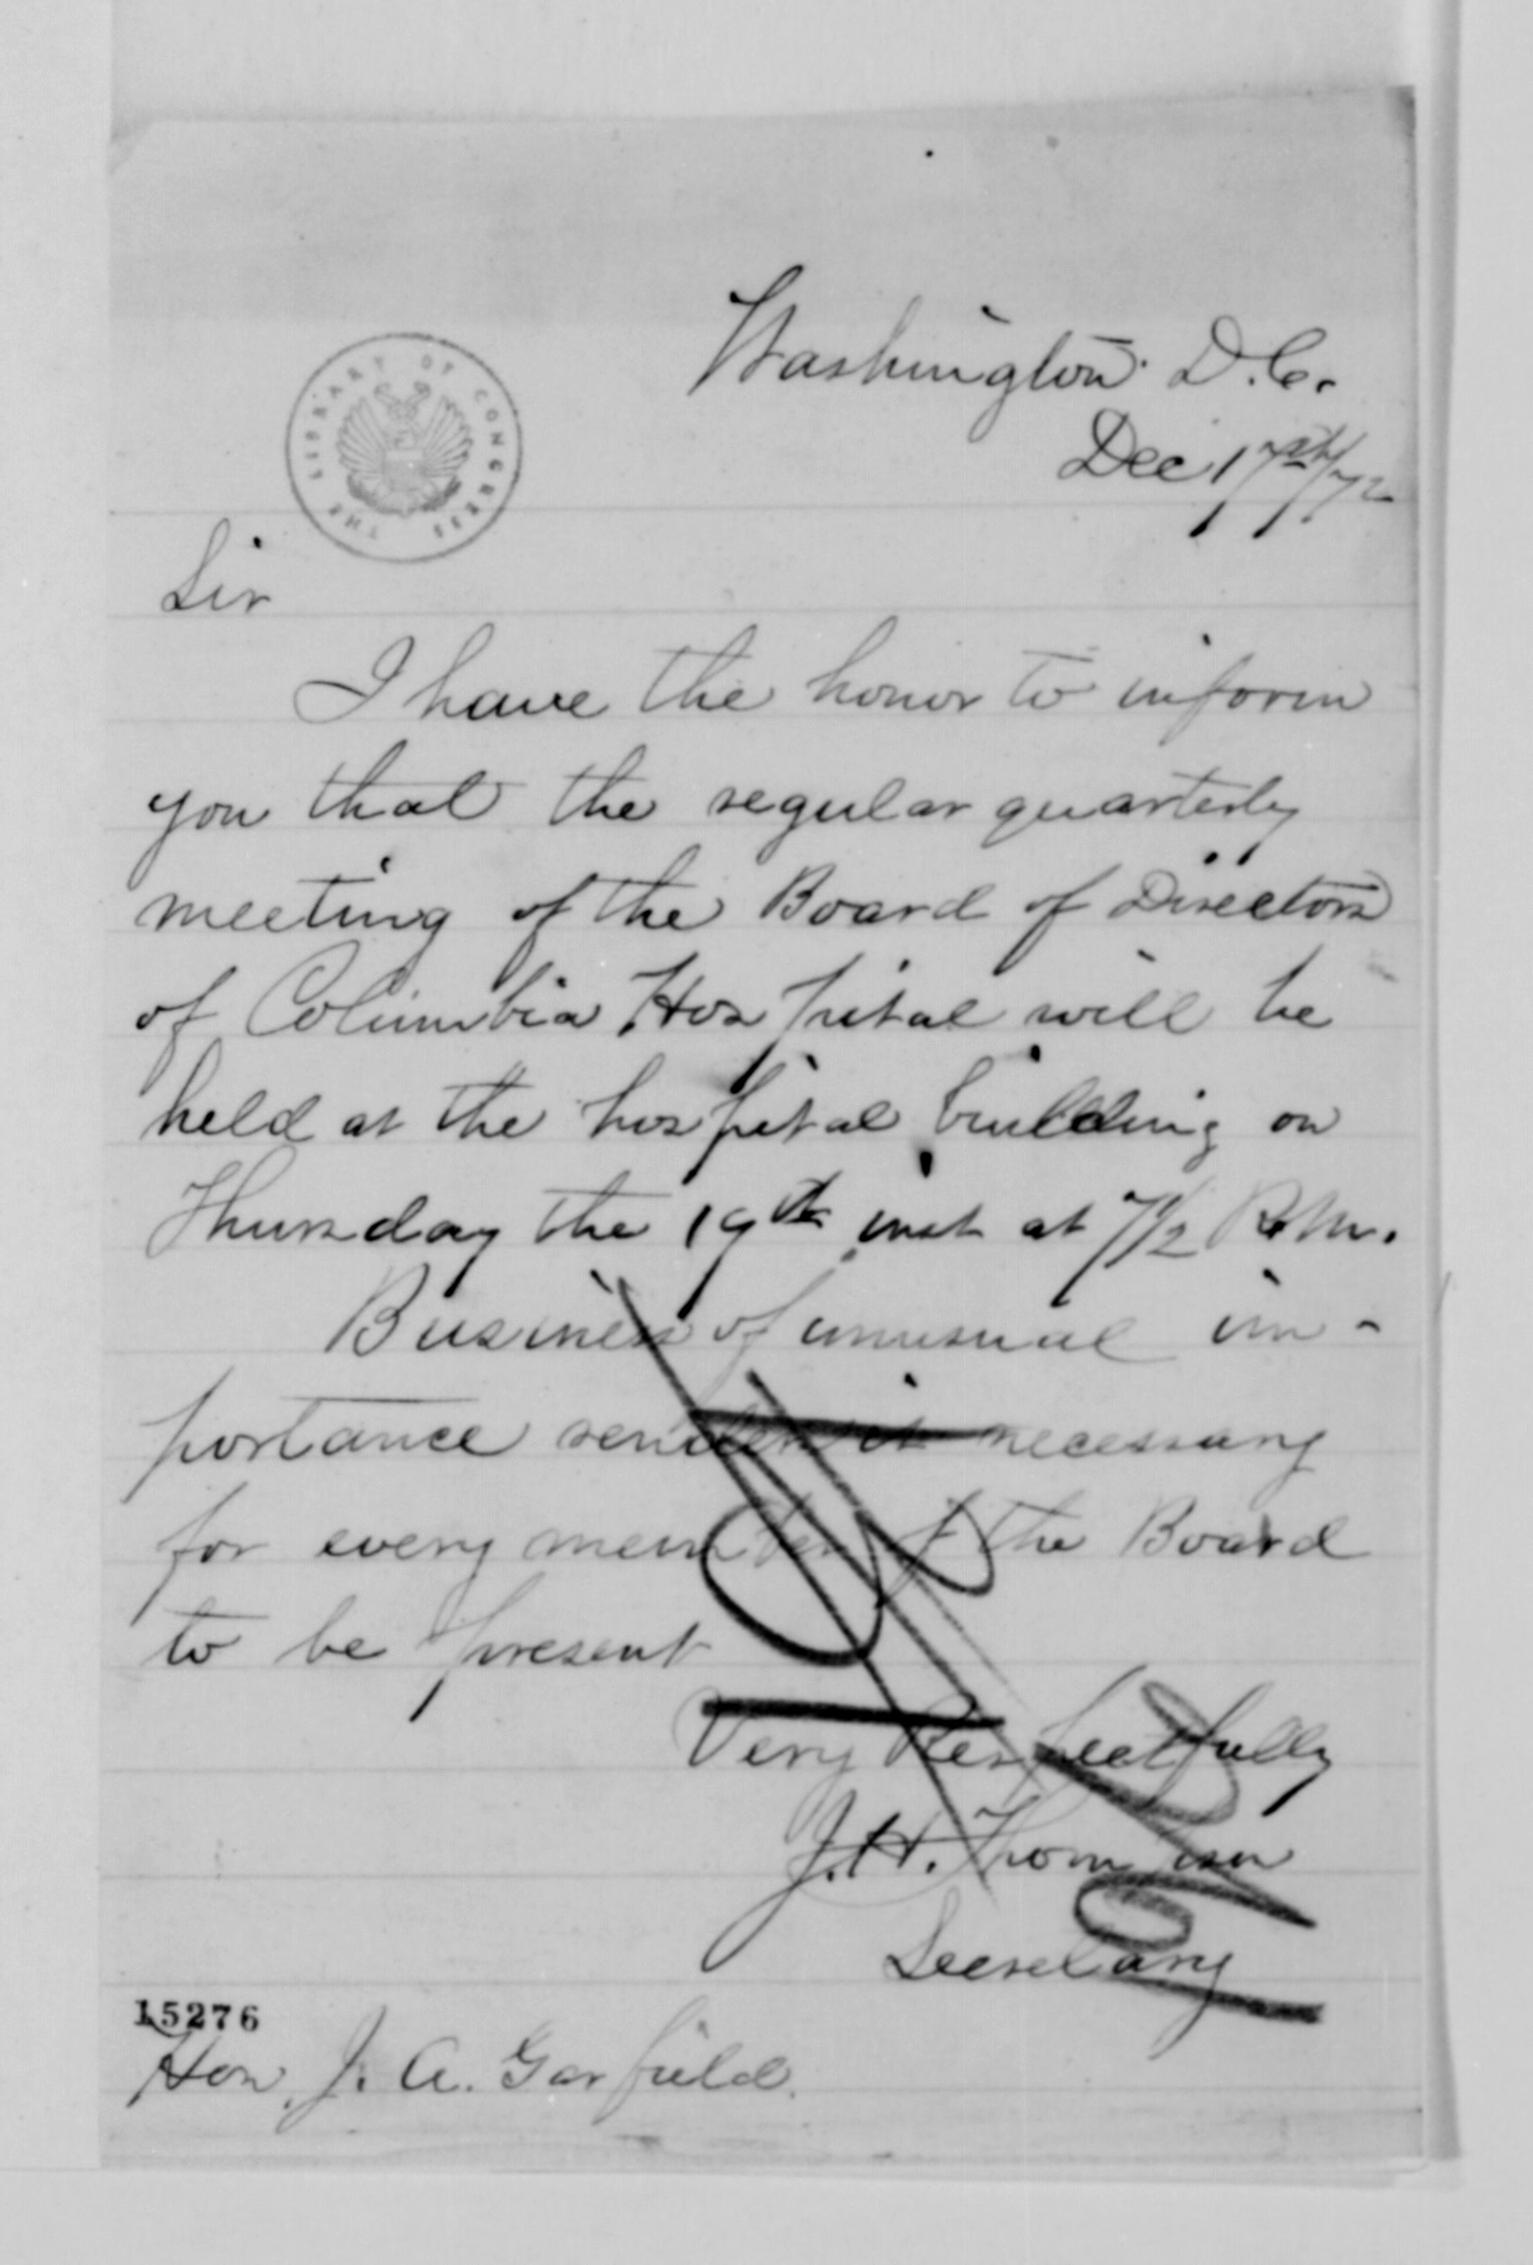 Washington D.C.
Dec 17th/72
THE LIBRARY OF CONGRESS
Sir
I have the honor to inform
you that the regular quarterly
meeting of the Board of Directors
of Columbia Hospital will be
held at the hospital building on
Thursday the 19th inst at 7 1/2 P.M.
Business of unusual im-
portance renders it necessary
for every member of the Board
to be present
Very Respectfully
J. H. Thompson
Secretary
15276
Hon. J. A. Garfield.